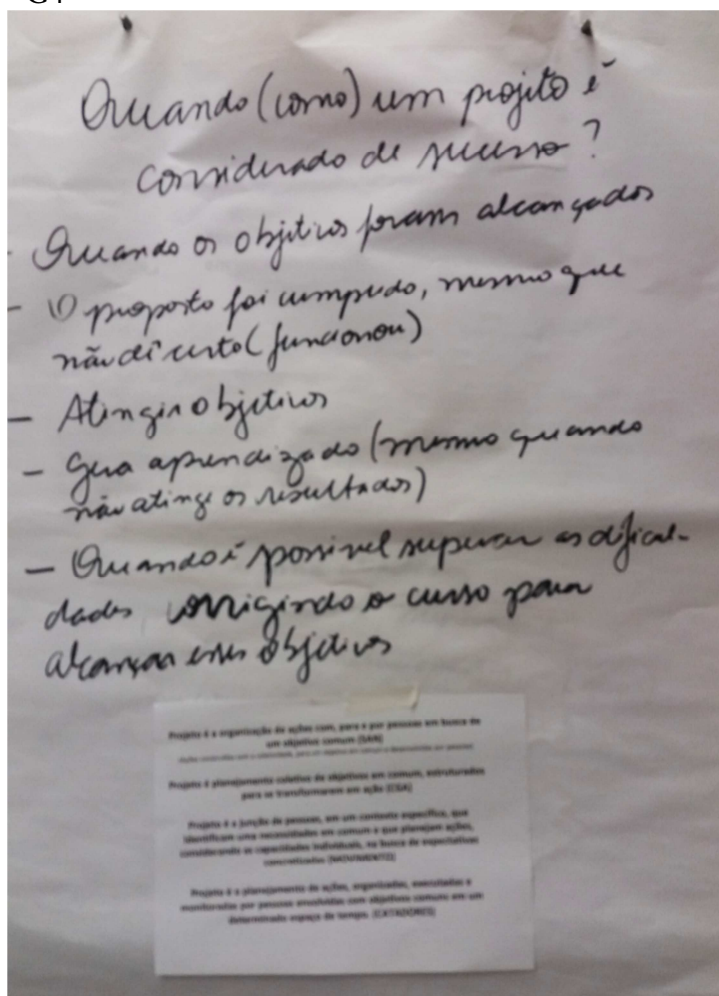 Quando (como) um projeto é
considerado de sucesso?
- Quando os objetivos foram alcançados
- O proposto foi cumprido, mesmo que
não dê certo (funcionou)
- Atingir objetivos
- Gera aprendizado (mesmo quando
não atinge os resultados)
- Quando é possível superar as dificul-
dades corrigindo o curso para
alcançar esses objetivos
Projeto é a organização de ações com, para e por pessoas em busca de
um objetivo comum (SAN)
Projeto é planejamento coletivo de objetivos em comum, estruturados
para se transformarem em ação (CGA)
Projeto é a junção de pessoas, em um contexto específico, que
identificam uma necessidades em comum e que planejam ações,
considerando as capacidades individuais, na busca de expectativas
concretizadas (MOVIMENTO)
Projeto é o planejamento de ações, organizadas, executadas e
monitoradas por pessoas envolvidas com objetivos comuns em um
determinado espaço de tempo. (CATADORES)